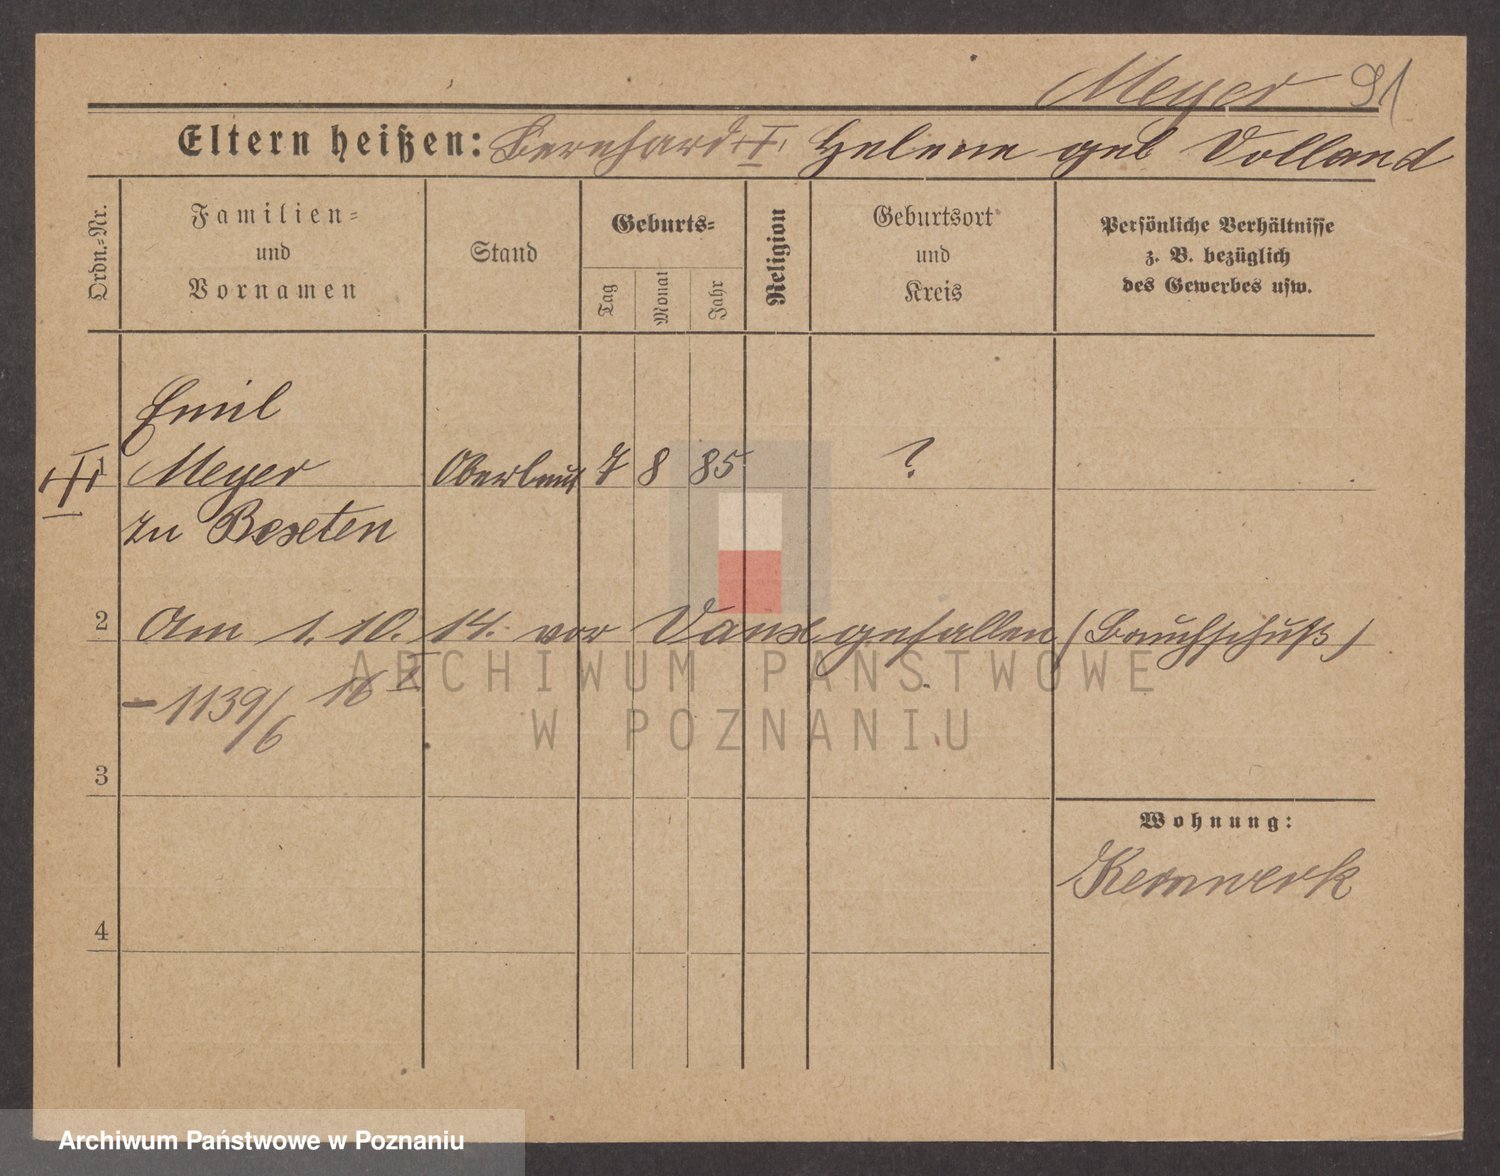 Meyer 91
Eltern heißen: Bernhard Helene geb Volland
Ordn.-Nr.
Familien-
und
Vornamen
Stand
Geburts-
Tag
Monat
Jahr
Religion
Geburtsort
und
Kreis
Persönliche Verhältnisse
z. B. bezüglich
des Gewerbes usw.
Emil
1 Meyer Oberleut 7 8 85 ?
zu
2 Am 1. 10. 14. vor gefallen (Bauchschuß)
ARCHIWUM PAŃSTWOWE
W POZNANIU
– 1139/6 16 I
3
Wohnung:
Kernwerk
4
Archiwum Państwowe w Poznaniu